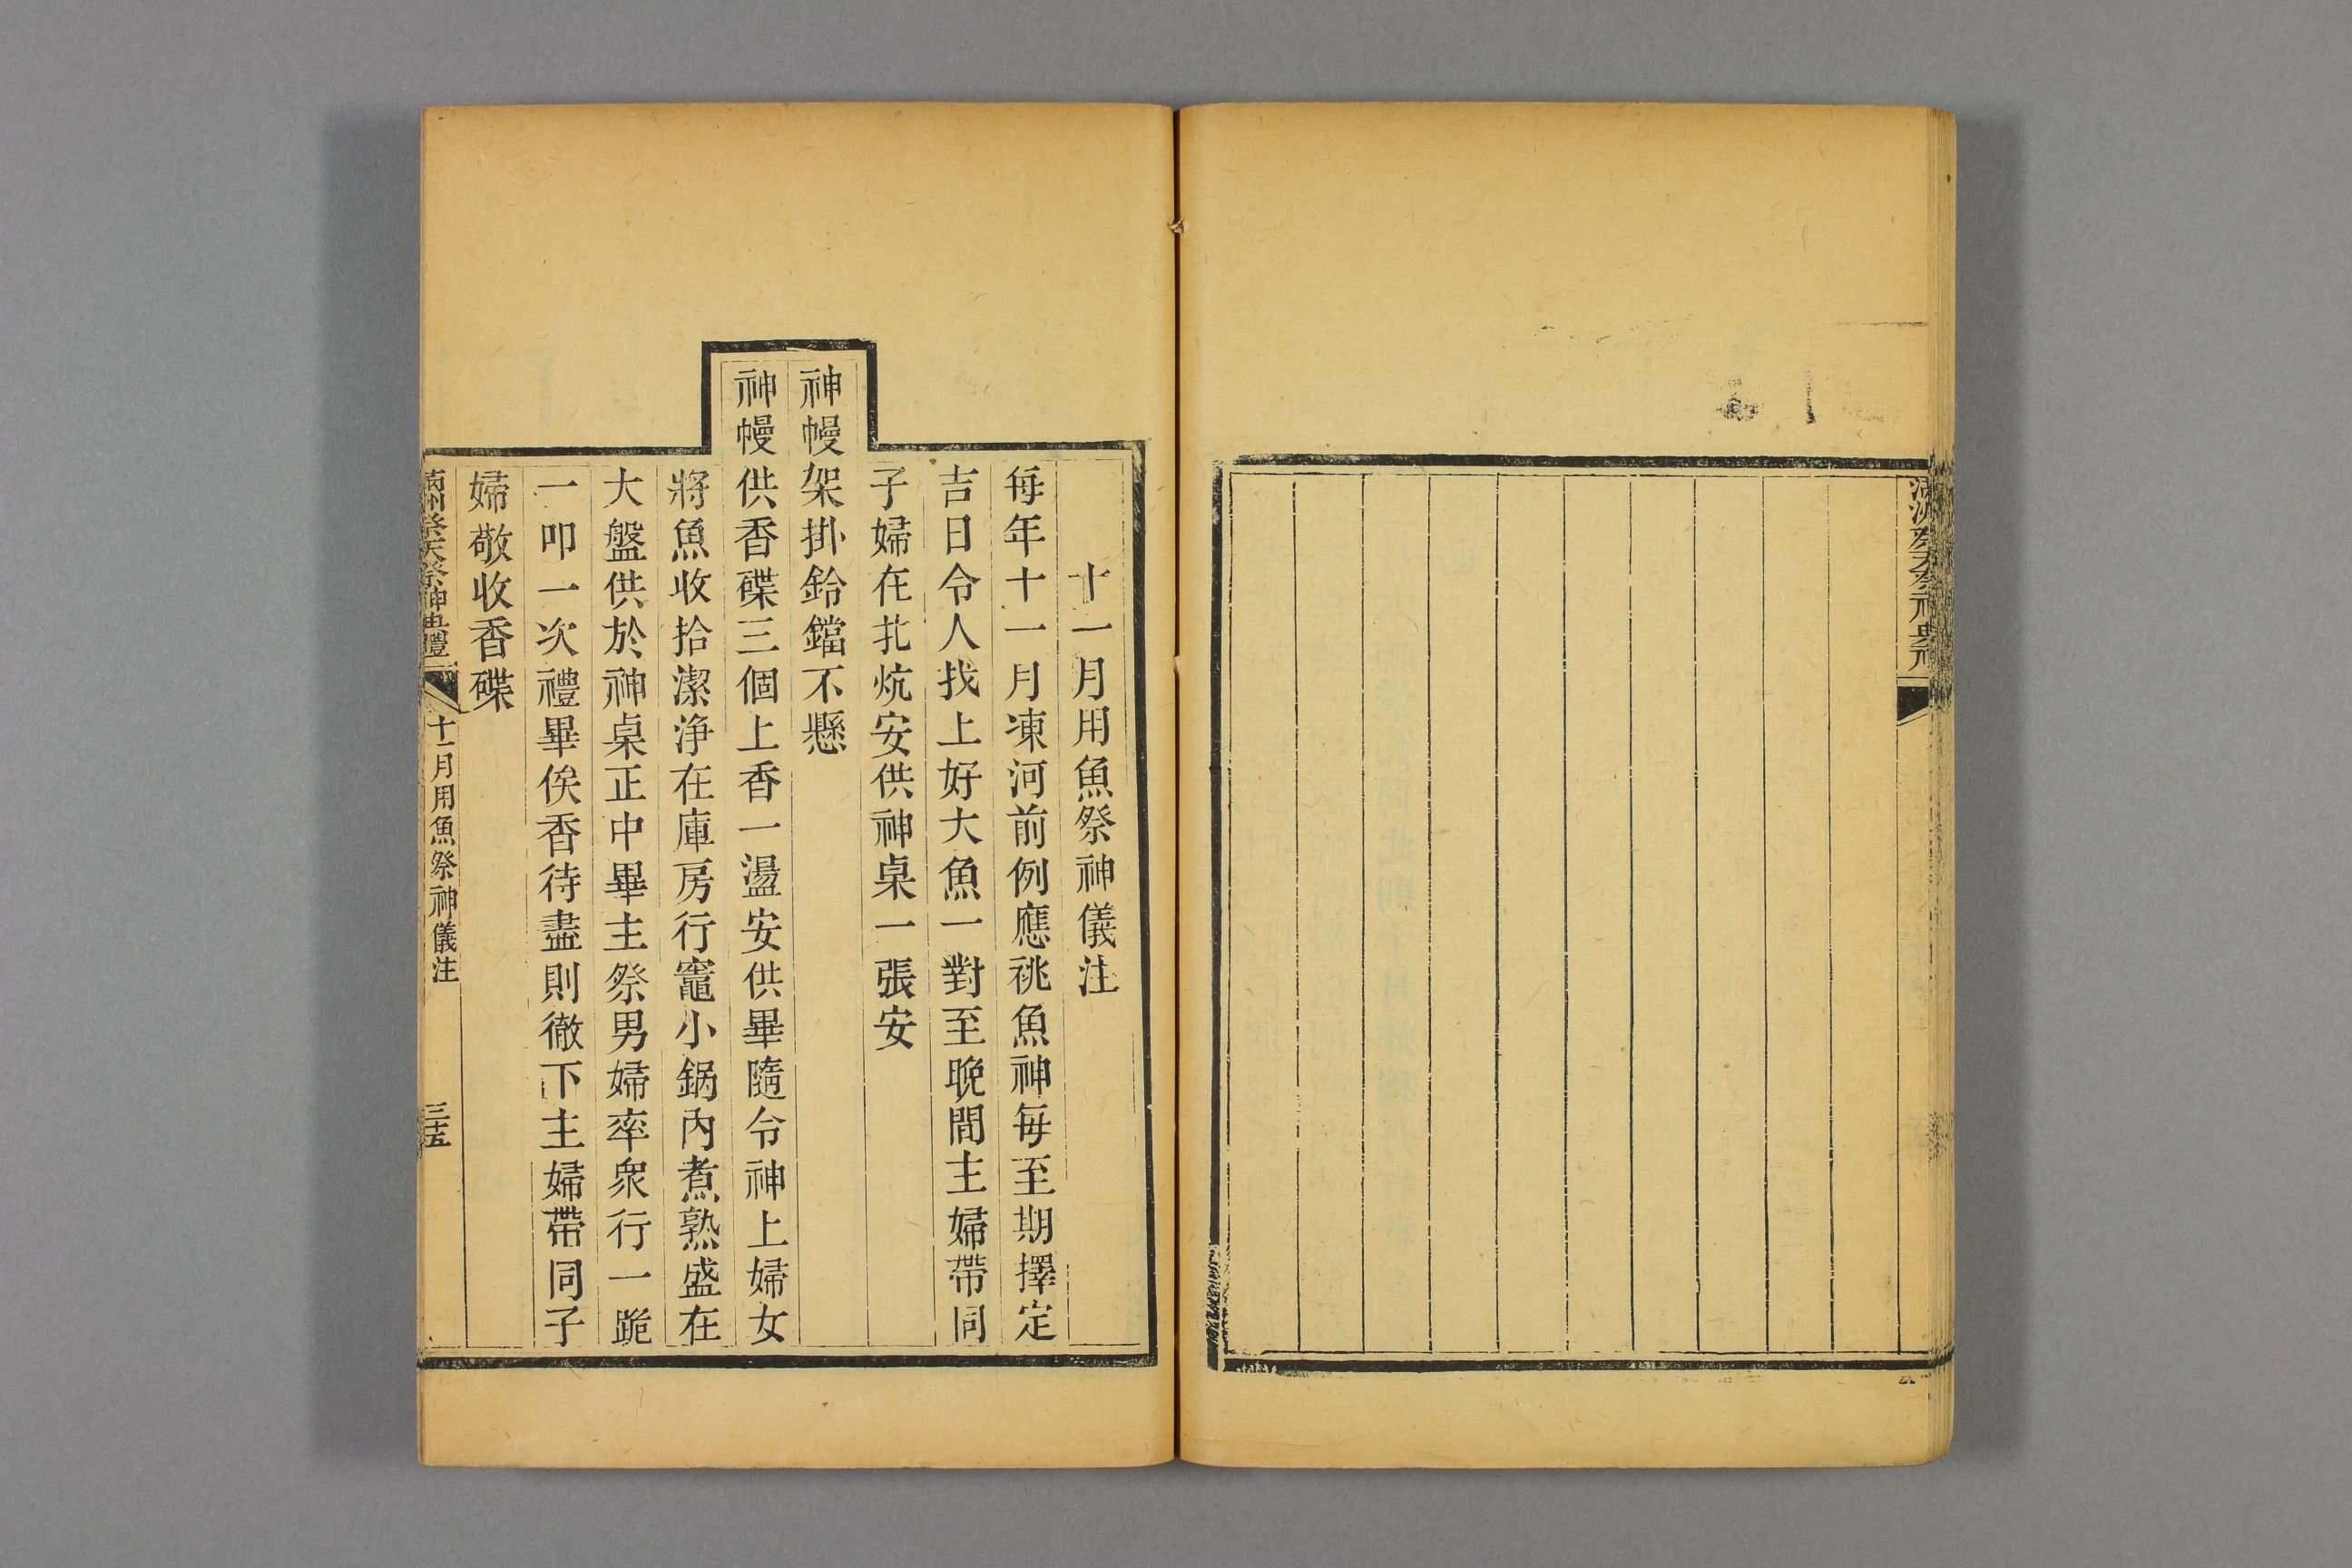 十一月用魚祭神儀注
每年十一月凍河前例應祧魚神每至期擇定
吉日令人找上好大魚一對至晚間主婦帶同
子婦在扎炕安供神桌一張安
神幔架掛鈴鐺不懸
神幔供香碟三個上香一盪安供畢隨令神上婦女
將魚收拾潔浄在庫房行竈小鍋內煮熟盛在
大盤供於神桌正中畢主祭男婦率衆行一跪
一叩一次禮畢俟香待盡則徹下主婦帶同子
婦敬收香碟
滿洲祭天祭神典禮
十一月用魚祭神儀注
三十五